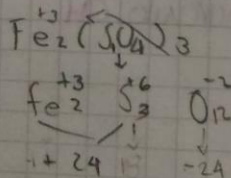 +3
Fe2(SO4)3
+3 +6 -2
Fe2 S3 O12
+ 24 -24